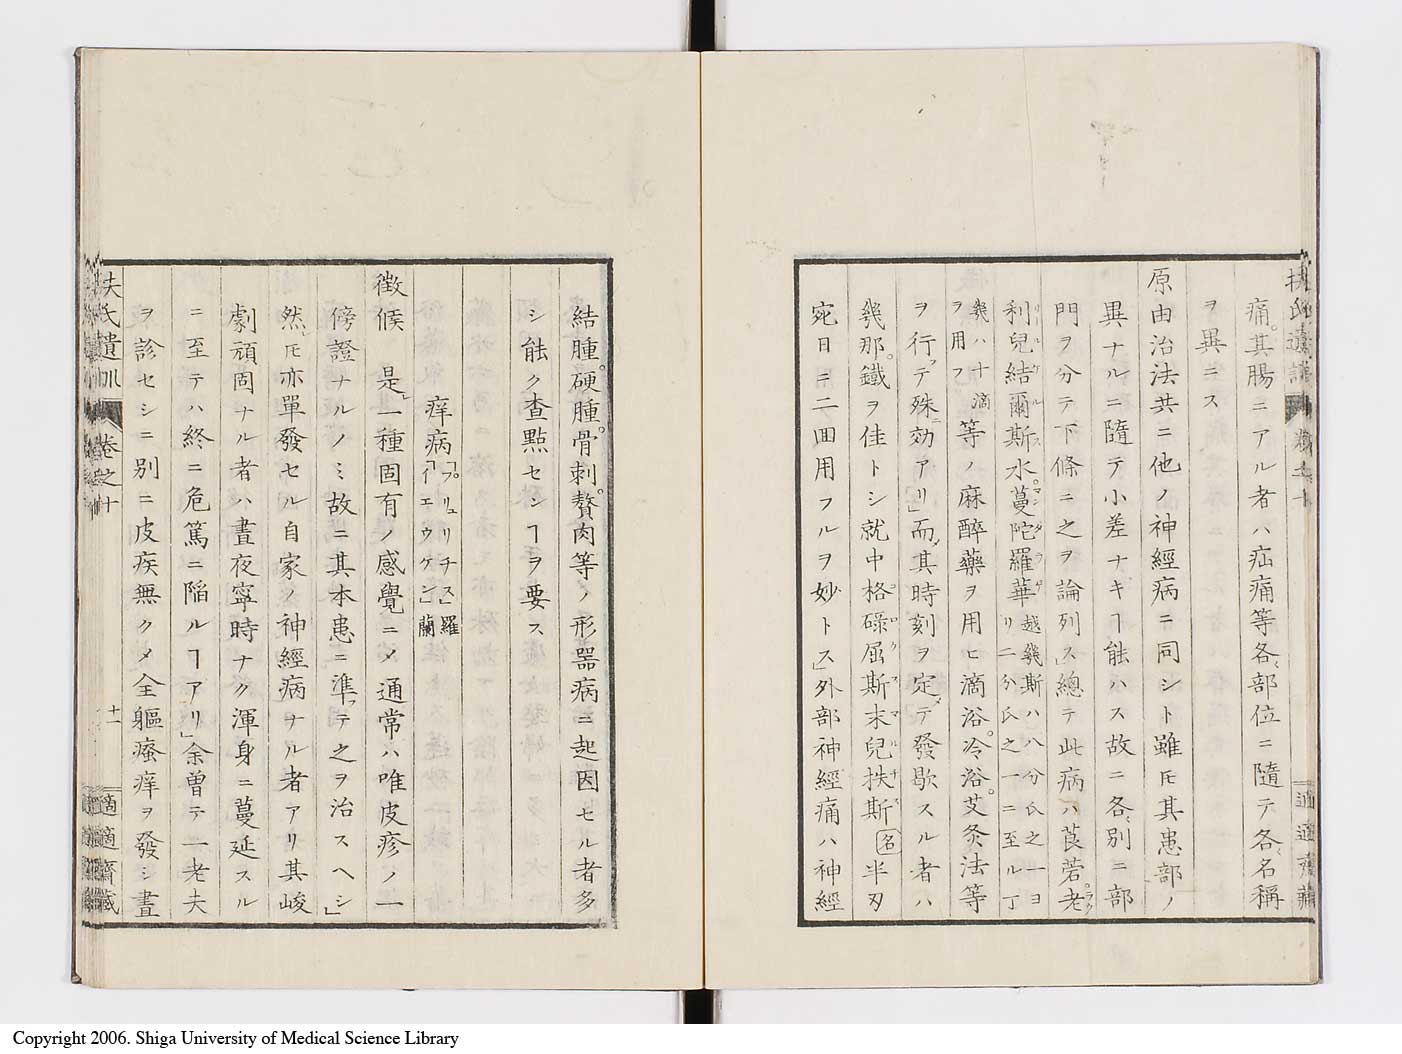 扶氏遺訓 卷之十 適適齋藏
痛。其腸ニアル者ハ疝痛等各部位ニ隨テ各名稱
ヲ異ニス
原由治法共ニ他ノ神經病ニ同シト雖𪜈其患部ノ
異ナルニ隨テ小差ナキヿ能ハス故ニ各別ニ部
門ヲ分テ下條ニ之ヲ論列ス」總テ此病ハ莨菪。老
利兒結爾斯水。蔓陀羅華越幾斯ハ八分氏之一ヨリ二分氏之一ニ至ル丁
幾ハ十滴ヲ用フ等ノ麻醉藥ヲ用ヒ滴浴。冷浴。艾灸法等
ヲ行テ殊効アリ」而其時刻ヲ定メテ發歇スル者ハ
幾那。鐵ヲ佳トシ就中格碌屈斯末兒抶斯名半刄
宛日ニ二囬用フルヲ妙トス」外部神經痛ハ神經
結腫。硬腫。骨刺。贅肉等ノ形器病ニ起因セル者多
シ能ク查點センヿヲ要ス
痒病「プリュリチス」羅「イエウケン」蘭
徵候 是一種固有ノ感覺ニメ通常ハ唯皮疹ノ一
傍證ナルノミ故ニ其本患ニ準テ之ヲ治スヘシ」
然𪜈亦單發セル自家ノ神經病ナル者アリ其峻
劇頑固ナル者ハ晝夜寧時ナク渾身ニ蔓延スル
ニ至テハ終ニ危篤ニ陷ルヿアリ」余曾テ一老夫
ヲ診セシニ別ニ皮疾無クメ全軀瘙痒ヲ發シ晝
扶氏遺訓 卷之十 十一 適適齋藏
Copyright 2006. Shiga University of Medical Science Library